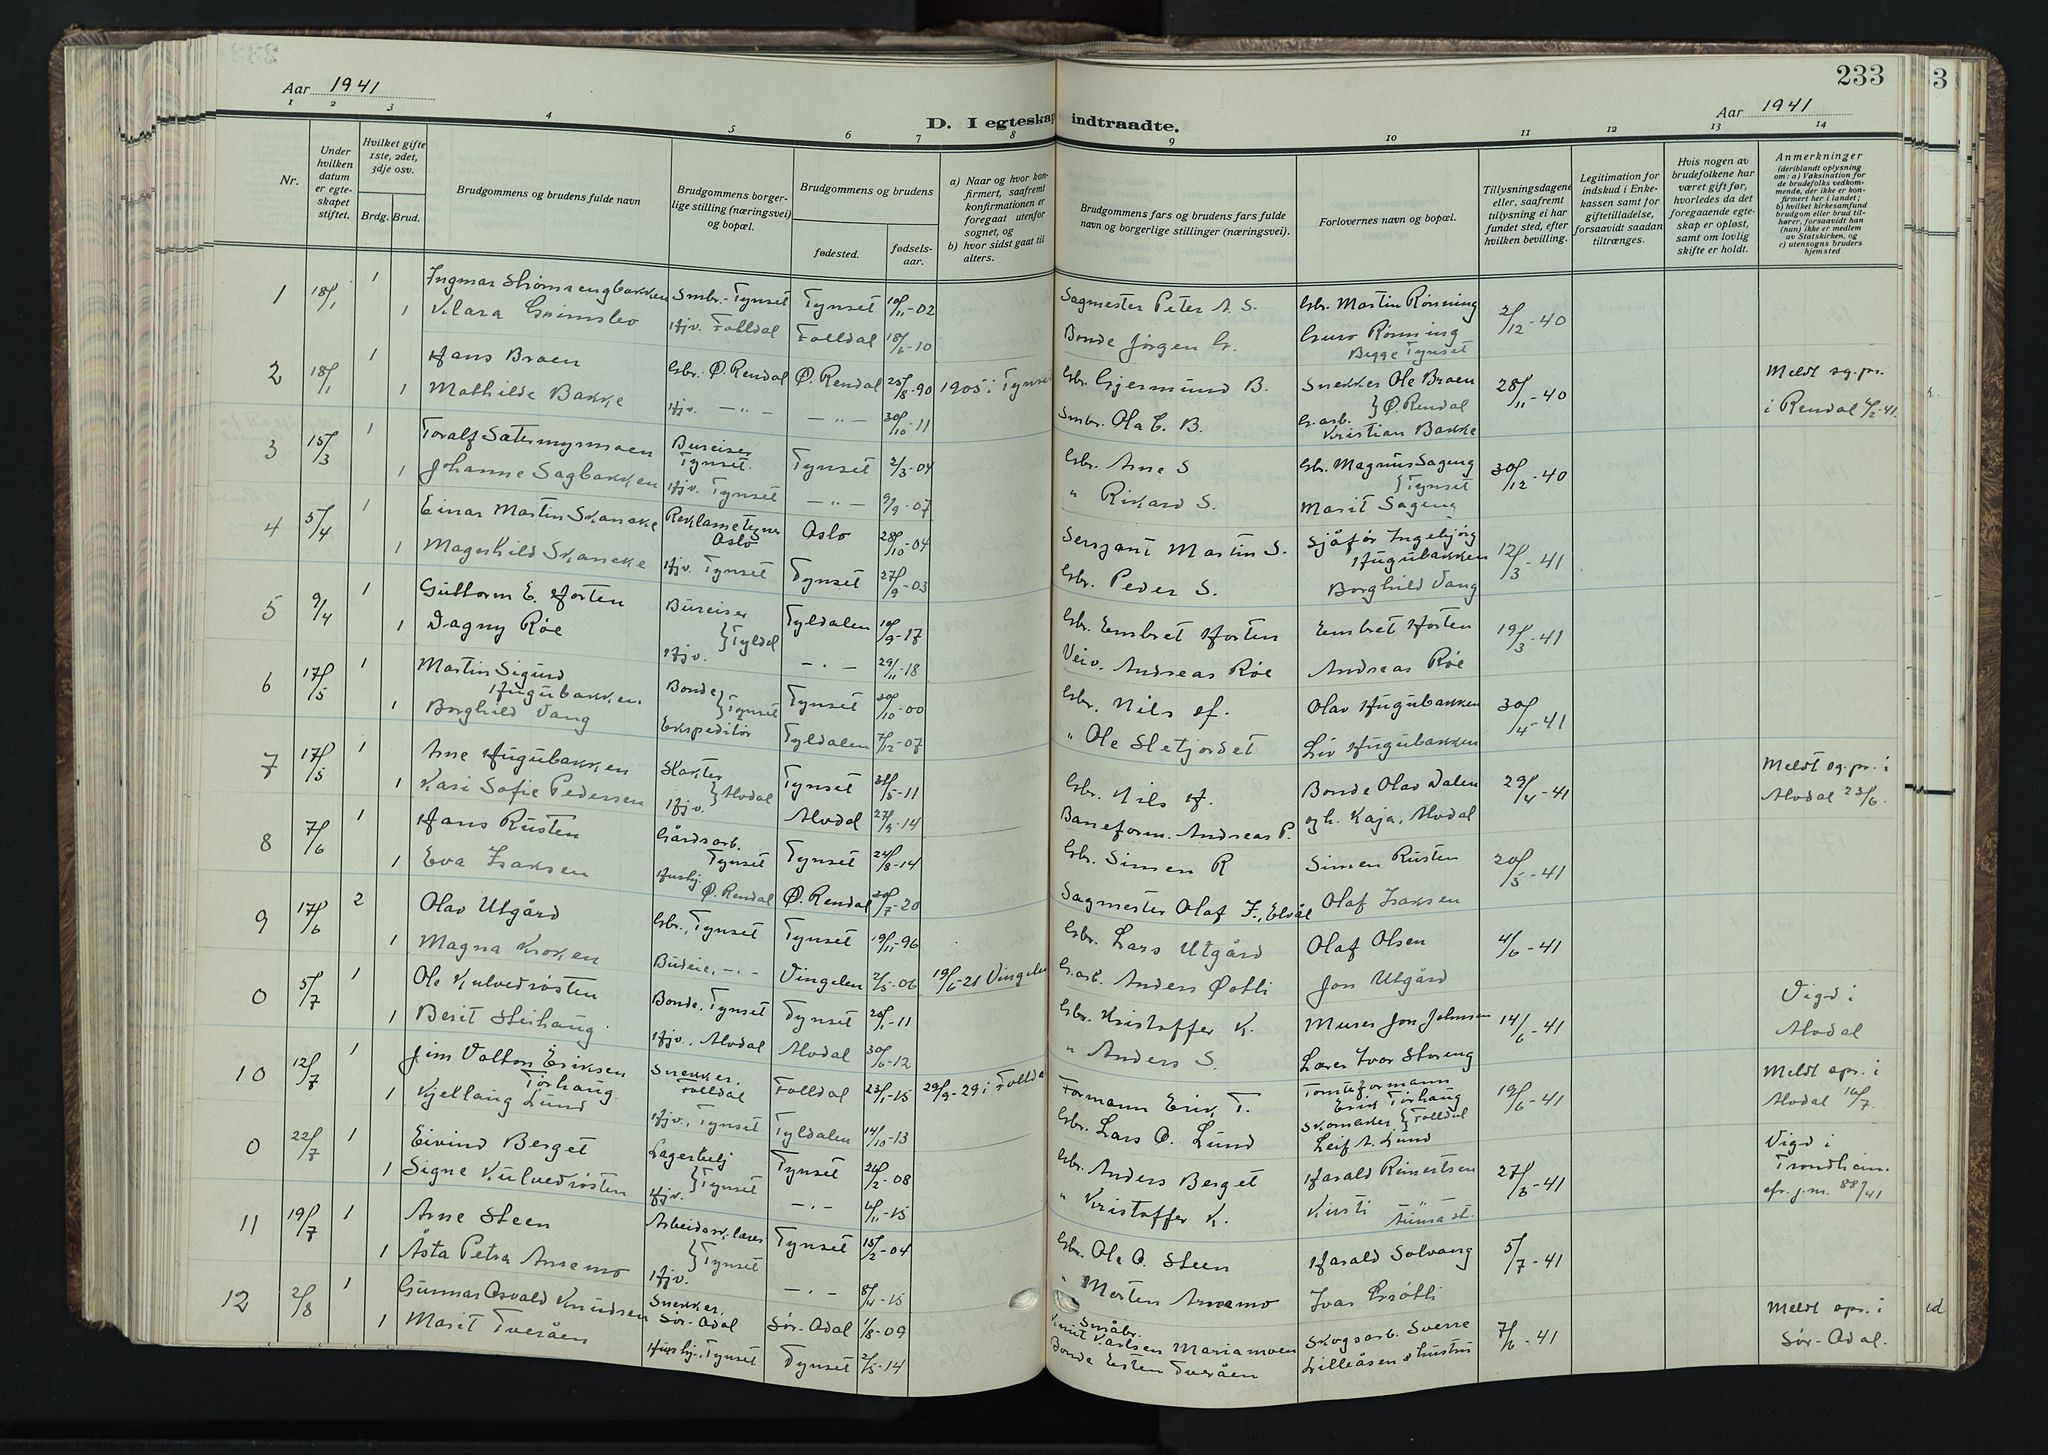 233
3
Aar 1941
Aar 1941
D. I egteskap indtraadte.
1 2 3 4 5 6 7 8 9 10 11 12 13 14
Nr.
Under hvilken datum er egte-skapet stiftet.
Hvilket gifte 1ste, 2det, 3dje osv.
Brdg. Brud.
Brudgommens og brudens fulde navn
Brudgommens borger-lige stilling (næringsvei) og bopæl.
Brudgommens og brudens
fødested.
fødsels-aar.
a) Naar og hvor kon-firmert, saafremt konfirmationen er foregaat utenfor sognet, og
b) hvor sidst gaat til alters.
Brudgommens fars og brudens fars fulde navn og borgerlige stillinger (næringsvei).
Forlovernes navn og bopæl.
Tillysningsdagene eller, saafremt tillysning ei har fundet sted, efter hvilken bevilling.
Legitimation for indskud i Enke-kassen samt for giftetilladelse, forsaavidt saadan tiltrænges.
Hvis nogen av brudefolkene har været gift før, hvorledes da det foregaaende egte-skap er opløst, samt om lovlig skifte er holdt.
Anmerkninger (deriblandt oplysning om: a) Vaksination for de brudefolks vedkom-mende, der ikke er kon-firmert her i landet; b) hvilket kirkesamfund brudgom eller brud til-hører, forsaavidt han (hun) ikke er medlem av Statskirken, og c) utensogns bruders hjemsted
1 18/1 1 Ingmar Strømsengbakken Smbr. Tynset Tynset 10/11-02 Sagmester Peter A. S. Gbr. Martin Rønning 2/12-40
1 Klara Grimsbo Hjv. Folldal Folldal 18/6-10 Bonde Jørgen G. Guro Rønning
Begge Tynset
2 18/1 1 Hans Braen Gbr. Ø. Rendal Ø. Rendal 25/8-90 1905 i Tynset Gbr. Gjermund B. Snekker Ole Braen 28/11-40 Meldt sg.pr.
1 Mathilde Bakke Hjv. -"- -"- 30/10-11 Smbr. Ola E. B. } Ø. Rendal i Rendal
G.arb. Kristian Bakke
3 15/3 1 Toralf Sætermyrmoen Bureiser Tynset. Tynset 2/3-04 Gbr. Arne S Gbr. Magnus Sageng 30/12-40
1 Johanne Sagbakken Hjv. Tynset -"- 9/9-07 " Rikard S. } Tynset
Marit Sageng
4 5/4 1 Einar Martin Skancke Reklametegner Oslo Oslo 28/10-04 Serzjant Martin S. Sjåfør Ingebjørg Hugubakken 12/3-41
1 Magnhild Skancke Hjv. Tynset Tynset 27/9-03 Gbr. Peder S. Borghild Vang
5 9/4 1 Guttorm E. Horten Bureiser Tyldalen 10/9-17 Gbr. Embret Horten Embret Horten 19/3-41
1 Dagny Røe Hjv. } Tyldal -"- 29/11-18 Veiv. Andreas Røe Andreas Røe
6 17/5 1 Martin Sigurd Hugubakken Bonde Tynset 30/10-00 Gbr. Nils H. Olav Hugubakken 30/4-41
1 Borghild Vang Ekspeditør } Tynset Tyldalen 7/12-07 " Ole Sletjordet Liv Hugubakken
7 17/5 1 Arne Hugubakken Slakter Tynset 31/5-11 Gbr. Nils H. Bonde Olav Dalen 29/4-41 Meldt sg.pr. i
1 Kari Sofie Pedersen Hjv. } Alvdal Alvdal 27/9-14 Baneform. Andreas P. og h. Kaja, Alvdal Alvdal 23/6.
8 7/6 1 Hans Rusten Gårdsarb. Tynset Tynset 24/8-14 Gbr. Simen R Simen Rusten 20/5-41
1 Eva Isaksen Hushj. Ø. Rendal Ø. Rendal 20/7-20 Sagmester Olaf I., Elvål Olaf Isaksen
9 17/6 2 Olav Utgård Gbr., Tynset Tynset 19/11-96 Gbr. Lars Utgård Olaf Olsen 4/6-41
1 Magna Kroken Budeie, -"- Vingelen 2/5-06 19/6-21 Vingelen G.arb. Anders Østli Jon Utgård
0 5/7 1 Ole Kulvedrøsten Bonde, Tynset Tynset 20/1-11 Gbr. Kristoffer K. Murer Jon Johnsen 14/6-41 Vigd i
1 Berit Steihaug Hjv., Alvdal Alvdal 30/6-12 " Anders S. Lærer Ivar Storeng Alvdal
10 12/7 1 Jim Valton Eriksen Tørhaug Snekker, Folldal Folldal 23/1-15 29/9-29 i Folldal Formann Erik T. Tomteformann Erik Tørhaug 19/6-41 Meldt spr. i
1 Kjellaug Lund Hjv., Tynset Tyldalen 14/10-13 Gbr. Lars O. Lund Skomaker } Folldal Leif A. Lund Alvdal 16/7.
0 22/7 1 Eivind Berget Lagerhelj Tynset 26/2-08 Gbr. Anders Berget Harald Reinertsen 27/3-41 Vigd i
1 Signe Kulvedrøsten Hjv. } Tynset -"- 6/11-15 " Kristoffer K. Kirsti Trondheim.
cfr. j.nr. 887/41
11 19/7 1 Arne Steen Tynset 15/2-04 Gbr. Ole O. Steen Harald Solvang 5/7-41
1 Åsta Petra Arnemo Hjv. } Tynset -"- 8/4-15 " Morten Arnemo Ivar
12 2/8 1 Gunnar Osvald Knudsen Snekker, Sør-Odal Sør-Odal 1/8-09 Småbr. Knut Karlsen Mariamoen Skogsarb. Sverre 7/6-41 Meldt spr. i
1 Marit Tveråen Hushj., Tynset Tynset 2/5-14 Bonde Esten Tveråen Lilleåsen & hustru Sør-Odal.